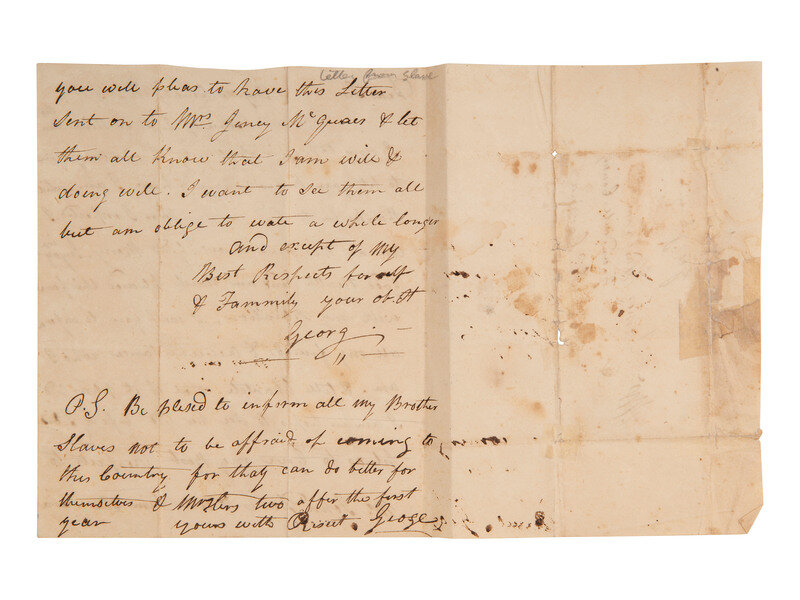 Letter From Slave
you will pleas to have this Letter
sent on to Mrs Jincy McGuaes & let
them all know that I am will &
doing will. I want to see them all
but am oblige to wate a while longer
and except of my
Best Respects for self
& Fammily your ob St
Georg
P.S. Be plesed to inform all my Brother
Slaves not to be affraid of coming to
this Country for thay can do better for
themselves & Masters two affer the first
year yours with Resect George